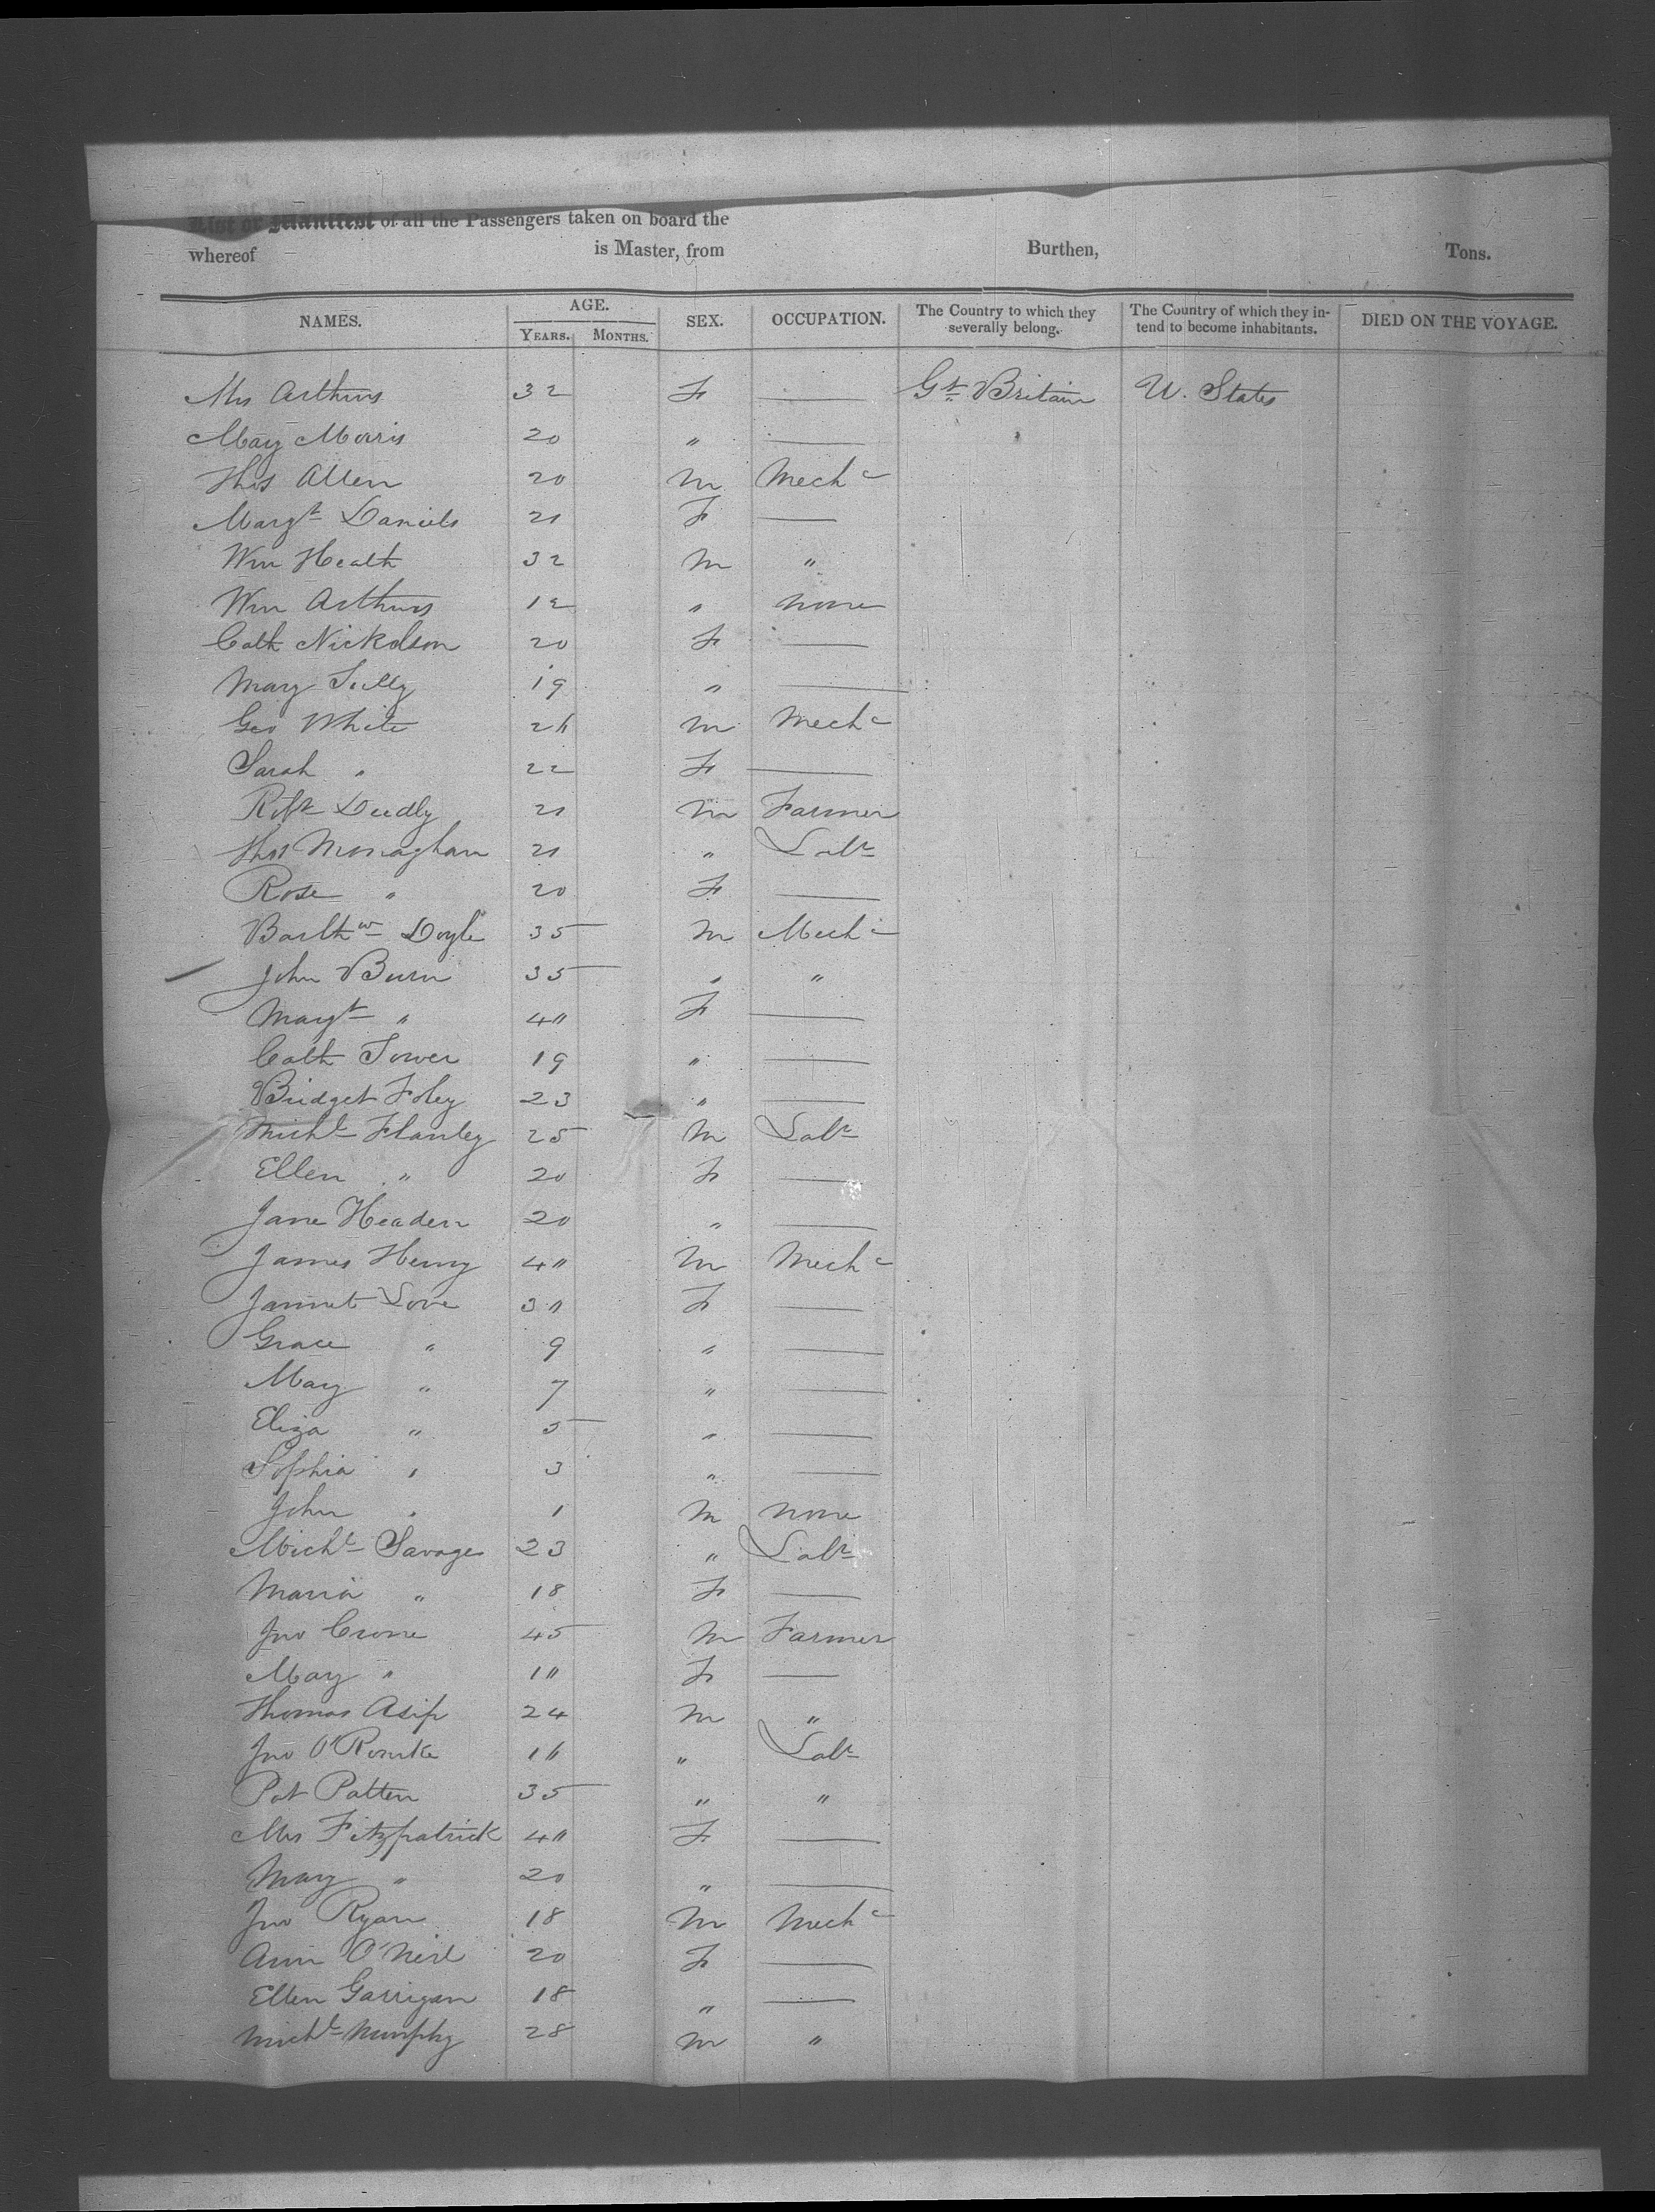 List or Manifest of all the Passengers taken on board the
whereof is Master, from Burthen, Tons.
NAMES. AGE. YEARS. MONTHS. SEX. OCCUPATION. The Country to which they severally belong. The Country of which they intend to become inhabitants. DIED ON THE VOYAGE.
Mrs Arthurs 32 F — Gt Britain U. States
Mary Morris 20 " —
Thos Allen 20 M Mechc
Margt Daniels 21 F —
Wm Heath 32 M "
Wm Arthurs 12 " none
Cath Nickolson 20 F —
Mary Tully 19 " —
Geo White 26 M Mechc
Sarah " 22 F —
Robt 21 M Farmer
Thos Monaghan 21 " Labr
Rose " 20 F —
Barthw Doyle 35 M Mechc
John Burn 35 " "
Margt " 40 F —
Cath Tower 19 " —
Bridget Foley 23 " —
Michl Flanley 25 M Labr
Ellen " 20 F —
Jane Headen 20 " —
James Henry 40 M Mechc
Jannet Love 30 F —
Grace " 9 " —
Mary " 7 " —
Eliza " 5 " —
Sophia " 3 " —
John " 1 M none
Michl Savage 23 " Labr
Maria " 18 F —
Jno Crone 45 M Farmer
Mary " 10 F —
Thomas Asip 24 M "
Jno O'Rourke 16 " Labr
Pat Patten 35 " "
Mrs Fitzpatrick 40 F —
Mary " 20 " —
Jno Ryan 18 M Mechc
Ann O'Neil 20 F —
Ellen Garrigan 18 " —
Michl Murphy 28 M "